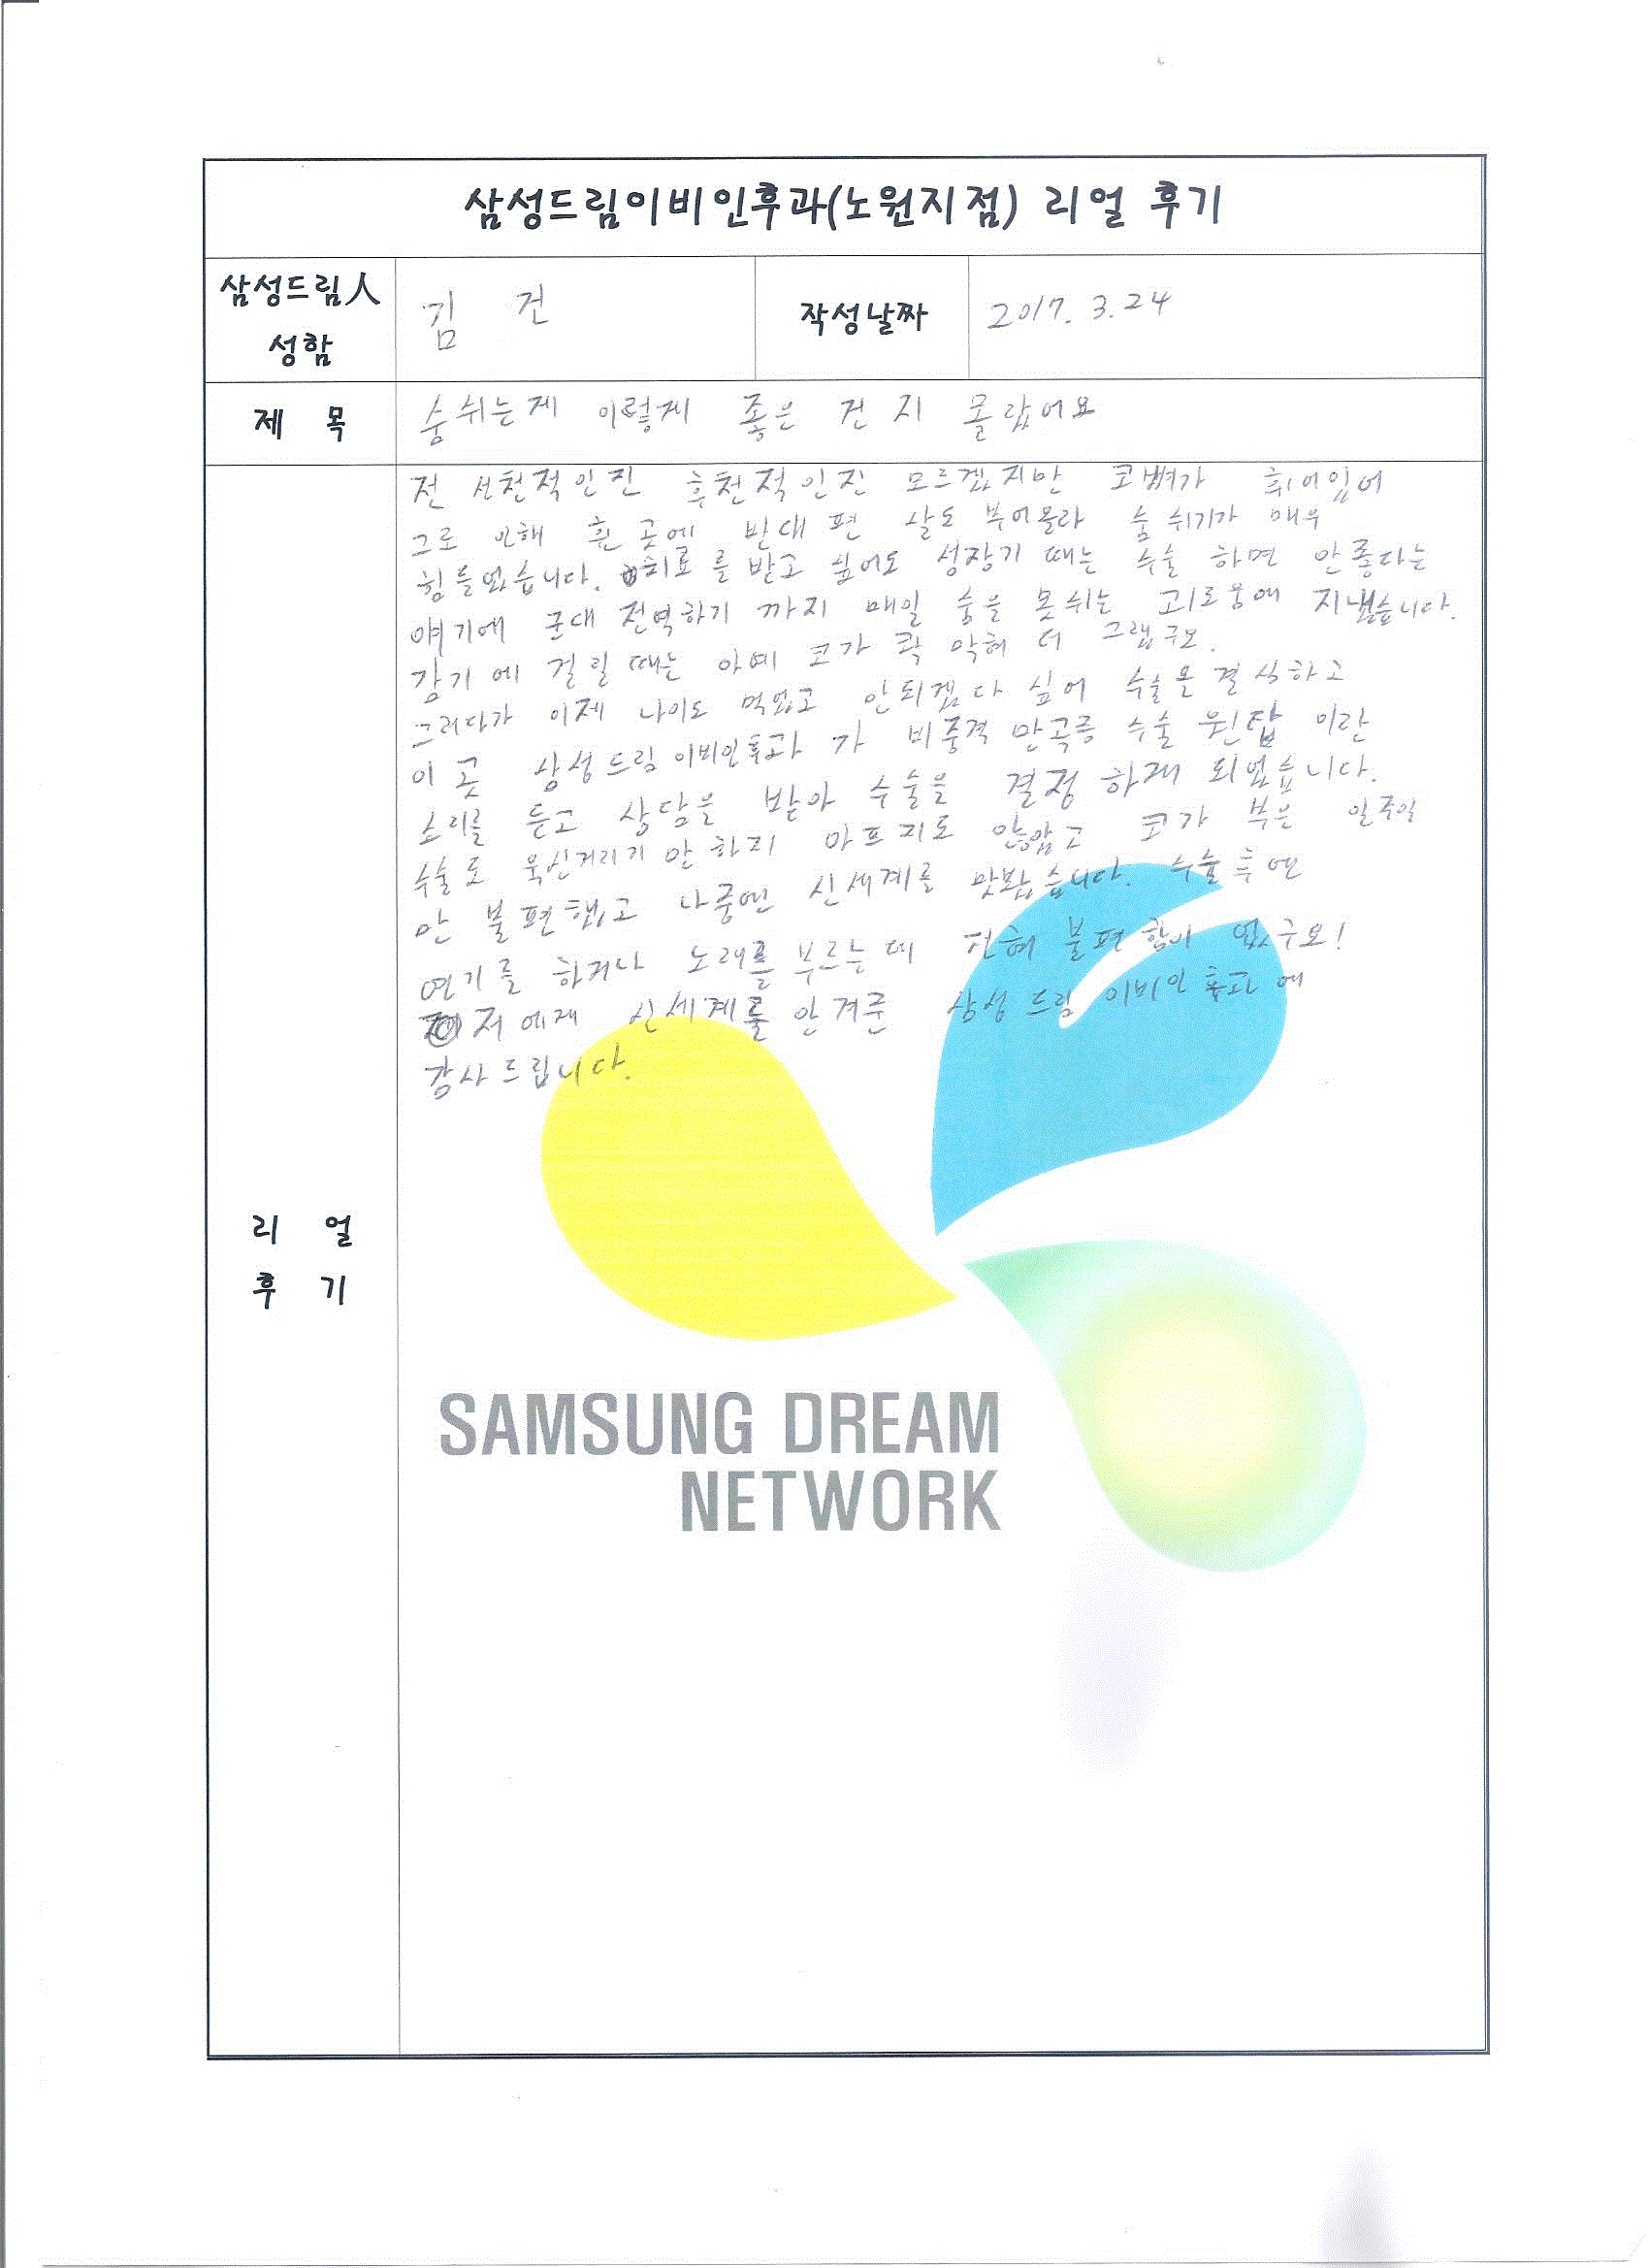 삼성드림이비인후과(노원지점) 리얼 후기
삼성드림人
성함
김 건
작성날짜
2017. 3. 24
제 목
숨쉬는게 이렇게 좋은 건 지 몰랐어요
전 선천적인진 후천적인진 모르겠지만 코뼈가 휘어있어
그로 인해 휜 곳에 반대 편 살도 부어올라 숨 쉬기가 매우
힘들었습니다. 치료를 받고 싶어도 성장기 때는 수술 하면 안좋다는
얘기에 군대 전역하기 까지 매일 숨을 못쉬는 괴로움에 지냈습니다.
감기에 걸릴 때는 아예 코가 꽉 막혀 더 그랬구요.
그러다가 이제 나이도 먹었고 안되겠다 싶어 수술을 결심하고
이 곳 삼성드림 이비인후과 가 비중격 만곡증 수술 원탑 이란
소리를 듣고 상담을 받아 수술을 결정 하게 되었습니다.
수술도 욱신거리기 만 하지 아프지도 않았고 코가 부은 일주일
만 불편했고 나중엔 신세계를 맛봤습니다. 수술후엔
연기를 하거나 노래를 부르는데 전혀 불편함이 없구요!
저에게 신세계를 안겨준 삼성 드림 이비인후과에
감사드립니다.
리 얼
후 기
SAMSUNG DREAM
NETWORK